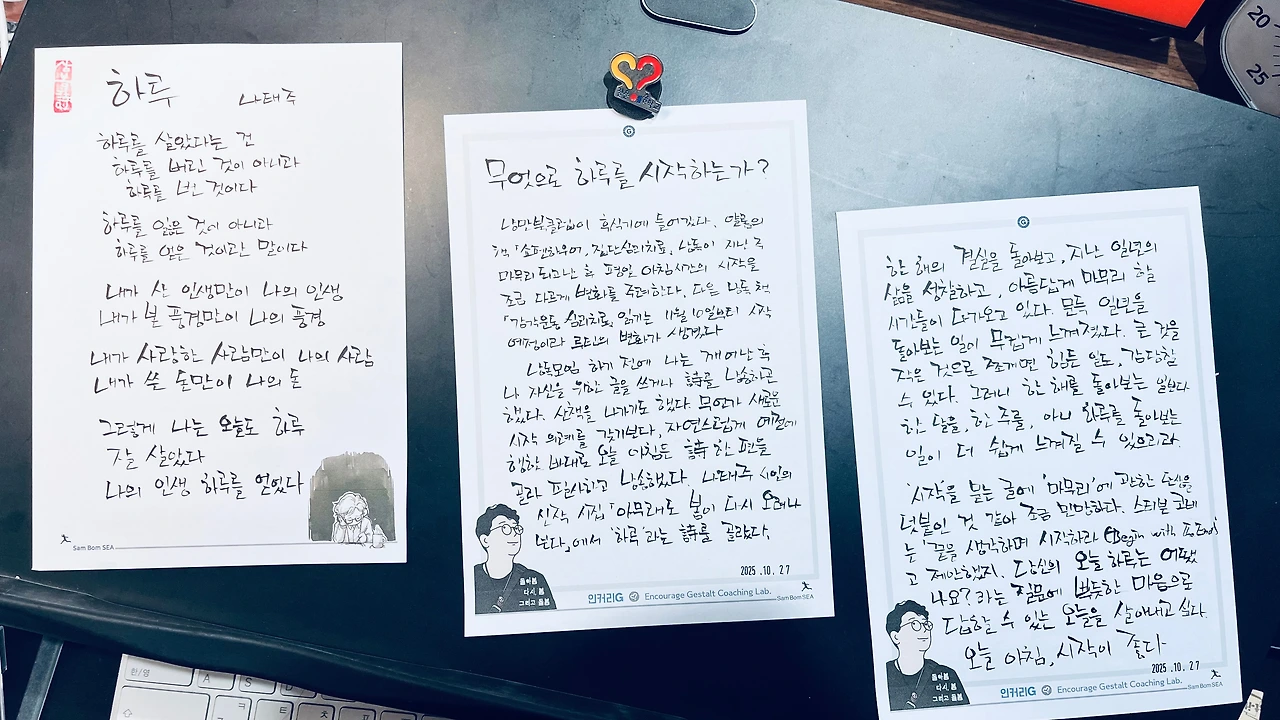 하루
나태주
하루를 살았다는 건
하루를 버린 것이 아니라
하루를 번 것이다
하루를 잃은 것이 아니라
하루를 얻은 것이란 말이다
내가 산 인생만이 나의 인생
내가 본 풍경만이 나의 풍경
내가 사랑한 사람만이 나의 사람
내가 쓴 돈만이 나의 돈
그렇게 나는 오늘도 하루
잘 살았다
나의 인생 하루를 얻었다
Sam Bom SEA
무엇으로 하루를 시작하는가?
낭만북클럽이 휴식기에 들어갔다.
책 「쇼펜하우어, 집단심리치료」 낭독이 지난 주
마무리 되고 난 후 평일 아침시간의 시작을
조금 다르게 변화를 주려한다. 다음 낭독 책
「감각운동 심리치료」 읽기는 11월 10일부터 시작
예정이라 루틴의 변화가 생겼다
낭독모임 하기 전에 나는 깨어난 후
나 자신을 위한 글을 쓰거나 詩를 낭송하곤
했다. 산책을 나가기도 했다. 무언가 새로운
시작 의례를 갖기보다, 자연스럽게 예전에
행한 바대로 오늘 아침은 詩 한 편을
골라 필사하고 낭송했다. 나태주 시인의
신작 시집 「아무래도 봄이 다시 오려나
보다」에서 '하루'라는 詩를 골랐다.
2025 .10. 27
돌아봄
다시, 봄
그리고 돌봄
인커리G Encourage Gestalt Coaching Lab.
Sam Bom SEA
한 해의 결실을 돌아보고, 지난 일년의
삶을 성찰하고, 아름답게 마무리 할
시간들이 다가오고 있다. 문득 일년을
돌아보는 일이 무겁게 느껴졌다. 큰 것을
작은 것으로 쪼개면 힘든 일도, 감당할
수 있다. 그러니 한 해를 돌아보는 일보다
한 달을, 한 주를, 아니 하루를 돌아보는
일이 더 쉽게 느껴질 수 있으리라.
'시작'을 묻는 글에 '마무리'에 관한 단상을
덧붙인 것 같아 조금 민망하다. 스티븐 코비
는 '끝을 생각하며 시작하라 (Begin with the End)'
고 제안했지. 당신의 오늘 하루는 어땠
나요? 라는 질문에 뿌듯한 마음으로
답할 수 있는 오늘을 살아내고 싶다.
오늘 아침, 시작이 좋다
2025 .10. 27
돌아봄
다시, 봄
그리고 돌봄
인커리G Encourage Gestalt Coaching Lab.
Sam Bom SEA
20
25
한/영
A
S
D